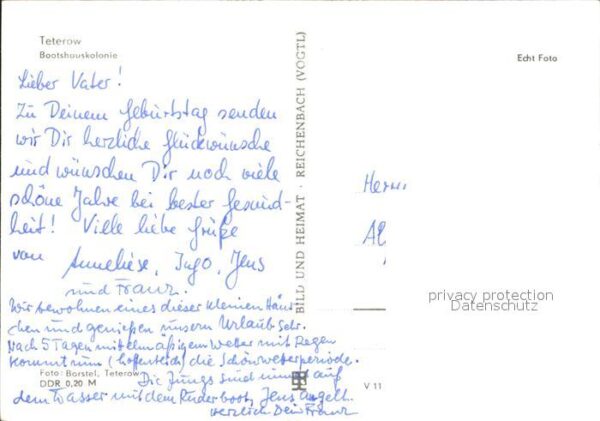 Teterow
Bootshauskolonie
Lieber Vater!
Zu Deinem Geburtstag senden
wir Dir herzliche Glückwünsche
und wünschen Dir noch viele
schöne Jahre bei bester Gesund-
heit! Viele liebe Grüße
von Anneliese, Ingo, Jens
und Franz.
Wir bewohnen eines dieser kleinen Häus-
chen und genießen unsern Urlaub sehr.
Nach 5 Tagen mittelmäßigem Wetter mit Regen
kommt nun (hoffentlich) die Schönwetterperiode.
Foto: Borstel, Teterow
Die Jungs sind immer auf
DDR 0,20 M
dem Wasser mit dem Ruderboot, Jens angelt.
Herzlich Dein Franz
BILD UND HEIMAT · REICHENBACH (VOGTL)
Echt Foto
Herrn
privacy protection
Datenschutz
V 11